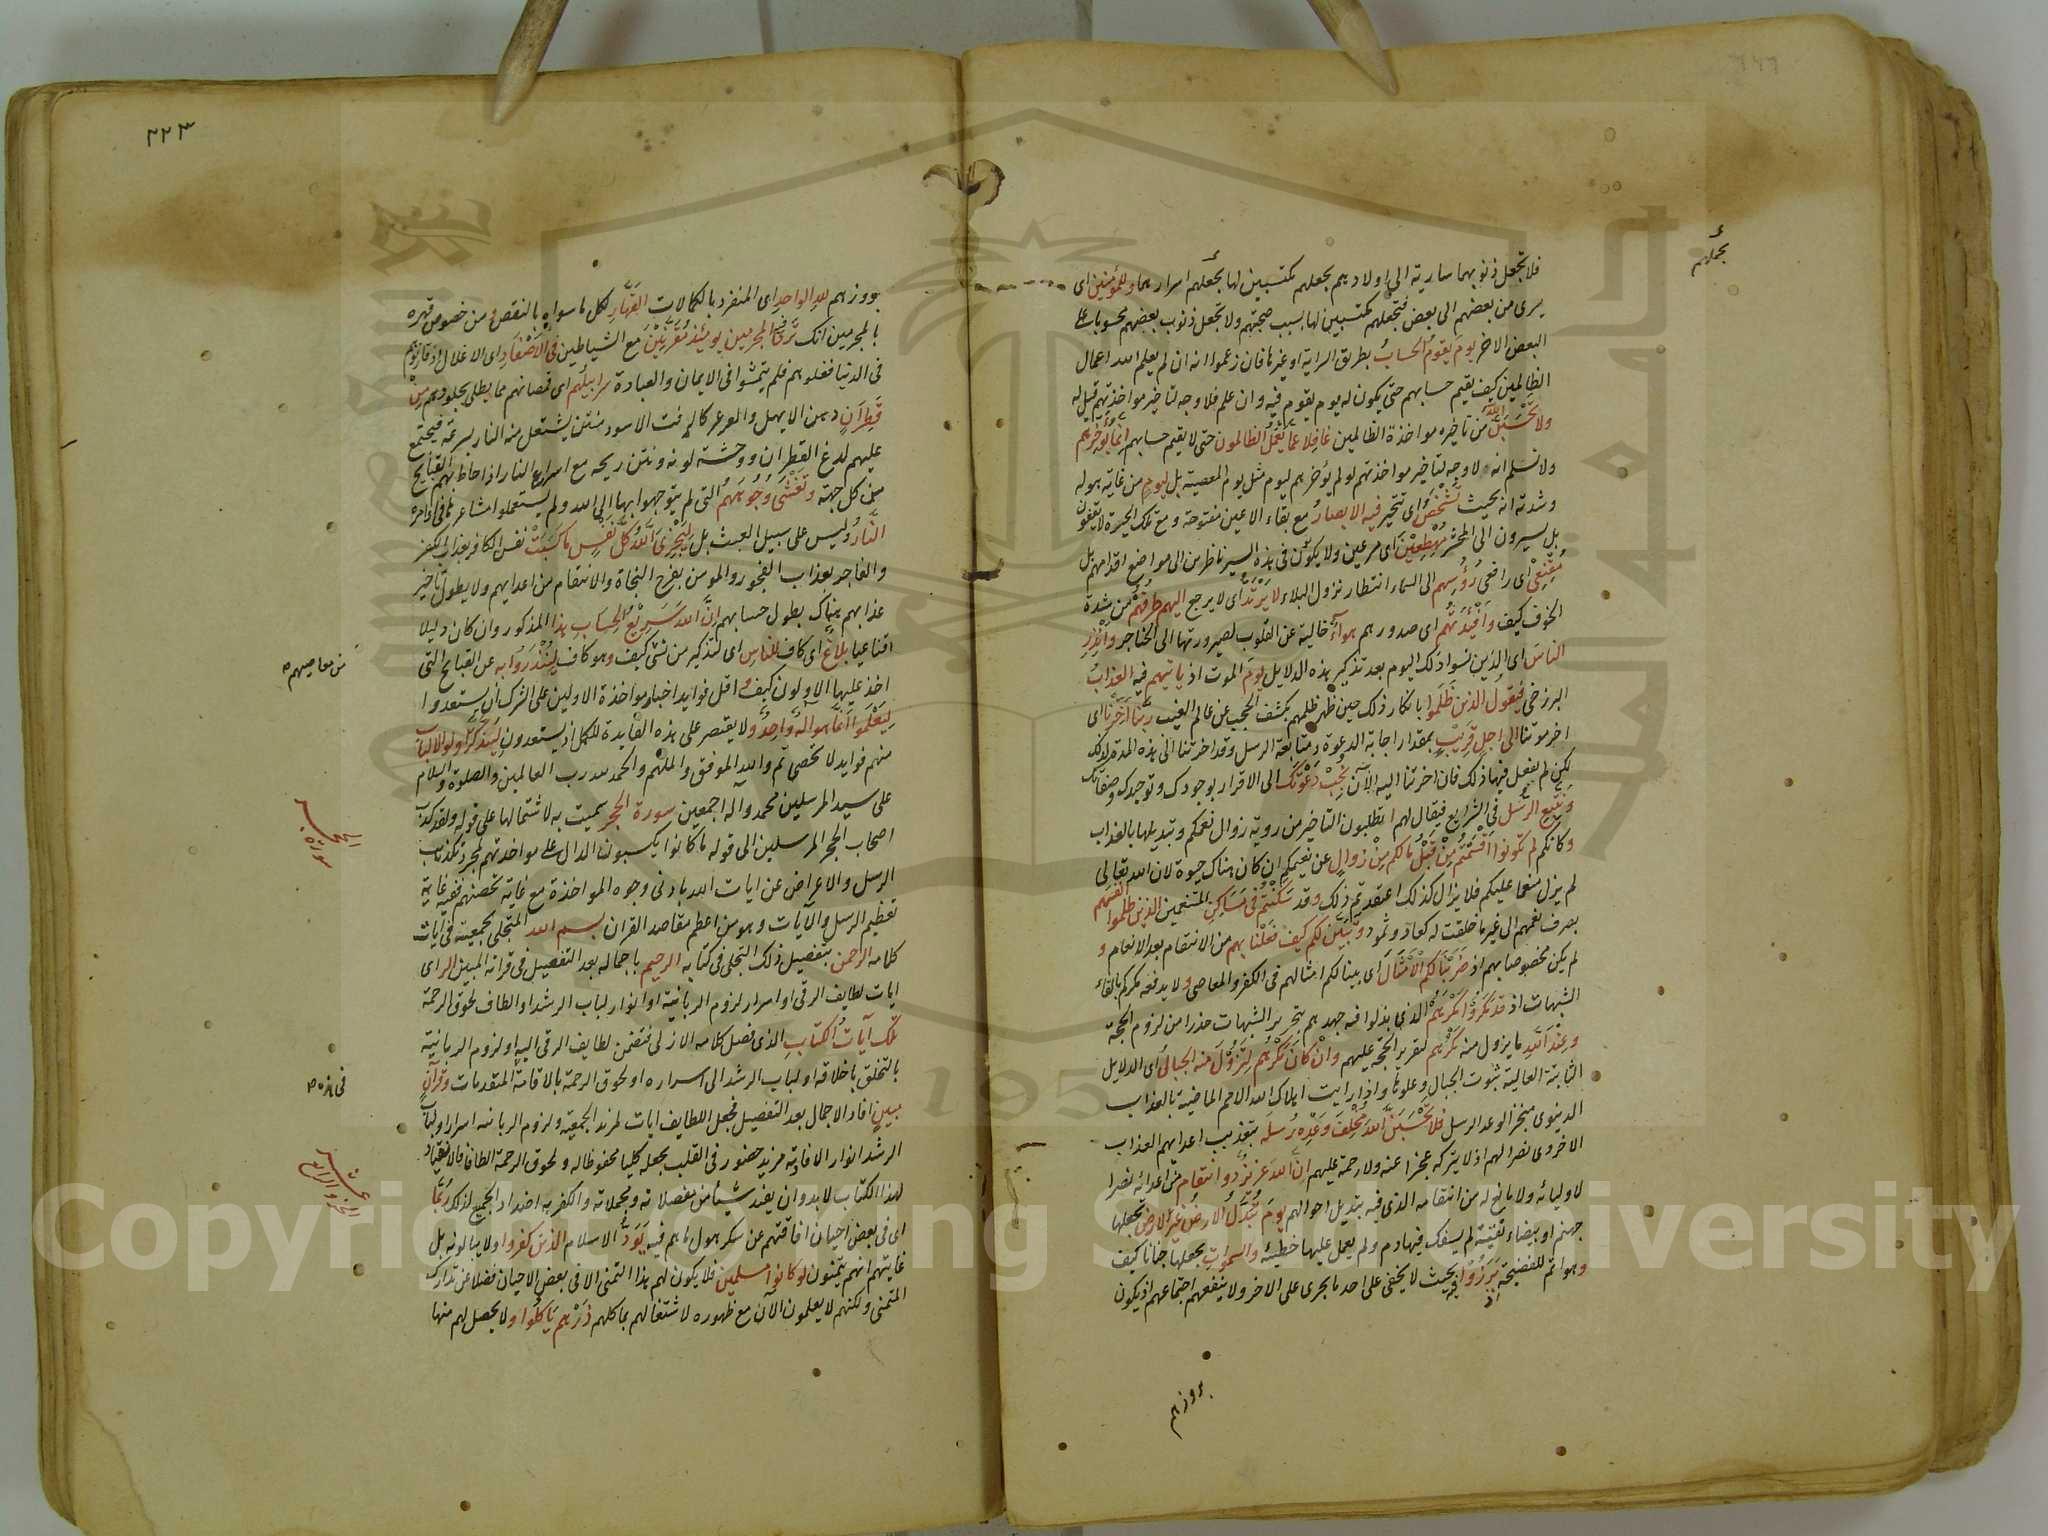 بجعلهم
فلا تجعل ذنوبهما سارية الى اولادهم بجعلهم مكتسبين لها بجعلهم اسرارهما وللمؤمنين اى
يرى من بعضهم الى بعض فتجعلهم مكتسبين لها بسبب صحبتهم ولا تجعل ذنوب بعضهم محسوبات على
البعض الاخر يوم يقوم الحساب بطريق السراية او غيرها فان زعموا انه ان لم يعلم الله اعمال
الظالمين كيف يقيم حسابهم حتى يكون له يوم يقوم فيه وان علم فلا وجه لتاخير مواخذتهم قيل له
ولا تحسبن الله من تاخيره مواخذة الظالمين غافلا عما يعمل الظالمون حتى لا يقيم حسابهم انما يؤخرهم
ولا نسلم انه لا وجه لتاخير مواخذتهم لو لم يؤخرهم ليوم مثل يوم المعصية بل ليوم من غاية هوله
وشدته انه بحيث تشخص اى تتحير فيه الابصار مع بقاء الاعين مفتوحة ومع تلك الحيرة لا يقفون
بل يسيرون الى المحشر مهطعين اى مسرعين ولا يكونون فى هذه السير ناظرين الى مواضع اقدامهم بل
مقنعى اى رافعى رؤسهم الى السماء انتظار نزول البلاء لا يرتد اى لا يرجع اليهم طرفهم من شدة
الخوف كيف وافئدتهم اى صدورهم هواء خالية عن القلوب لصيرورتها الى الحناجر وانذر
الناس اى الذين نسوا ذلك اليوم بعد تذكير هذه الدلايل يوم الموت اذ ياتيهم فيه العذاب
البرزخى فيقول الذين ظلموا بانكار ذلك حين ظهر ظلمهم بكشف الحجب عن عالم الغيب ربنا اخرنا اى
اخر موتنا الى اجل قريب بمقدار اجابة الدعوة ومتابعة الرسل وقد اخرتنا الى هذه المدة لذلك
لكن لم نفعل فيها ذلك فان اخرتنا اليه الآن نجب دعوتك الى الاقرار بوجودك وتوحيدك وصفاتك
ونتبع الرسل فى الشرايع فيقال لهم اتطلبون التاخير من روية زوال نعمكم وتبديلها بالعذاب
وكانكم لم تكونوا اقسمتم من قبل ما لكم من زوال عن نعيمكم ان كان هناك حيوة لان الله تعالى
لم يزل منعما عليكم فلا يزال كذلك اعتقدتم ذلك وقد سكنتم فى مساكن المتنعمين الذين ظلموا انفسهم
بصرف نعمهم الى غير ما خلقت له كعاد وثمود وتبين لكم كيف فعلنا بهم من الانتقام بعد الانعام و
لم يكن مخصوصا بهم اذ ضربنا لكم الامثال اى بينا لكم امثالهم فى الكفر والمعاصى ولا يدفعه مكركم بالقاء
الشبهات اذ قد مكروا مكرهم الذى بذلوا فيه جهدهم بتحرير الشبهات حذرا من لزوم الحجة
وعند الله ما يزول منه مكرهم لتقرير الحجة عليهم وان كان مكرهم لتزول منه الجبال اى الدلايل
الثابتة العالية ثبوت الجبال وعلوها واذا رايت اهلاك الله الامم الماضية بالعذاب
الدينوى منجز الوعد الرسل فلا تحسبن الله مخلف وعده رسله بتعذيب اعدائهم العذاب
الاخروى نصرا لهم اذ لا يتركه عجزا عنه ولا رحمة عليهم ان الله عزيز ذو انتقام من اعدائه نصرا
لاوليائه ولا مانع له من انتقامه الذى فيه بتبديل احوالهم يوم تبدل الارض غير الارض تجعلها
جهنم او بيضاء نقية لم يسفك فيها دم ولم يعمل عليها خطيئة والسموات بجعلها جنانا كيف
وهو اتم للفضيحة اذ برزوا فيه بحيث لا يخفى على احد ما يجرى على الاخر ولا ينفعهم اجتماعهم اذ يكون
بروزهم
٢٢٣
بروزهم لله الواحد اى المنفرد بالكمالات القهار لكل ما سواه بالنقص ومن خصوص قهره
بالمجرمين انك ترى المجرمين يومئذ مقرنين مع الشياطين فى الاصفاد اى الاغلال اذ قارنوهم
فى الدنيا فغلوهم فلم يتمشوا فى الايمان والعبادة سرابيلهم اى قمصانهم مما يطلى بجلودهم من
قطران دهن الابهل والعرعر كالزفت الاسود منتن يشتعل منه النار بسرعة فيجتمع
عليهم لدغ القطران ووحشة لونه ونتن ريحه مع اسراع النار اذا احاط بهم القبايح
من كل جهة وتغشى وجوههم التى لم يتوجهوا بها الى الله ولم يستعملوا مشاعرها فى اوامره
النار وليس على سبيل العبث بل ليجزى الله كل نفس ما كسبت نفس الكافر بعذاب الكفر
والفاجر بعذاب الفجور والمومن بفرح النجاة والانتقام من اعدايهم ولا يطول تاخير
عذابهم هناك بطول حسابهم ان الله سريع الحساب هذا المذكور وان كان دليلا
اقناعيا بلاغ اى كاف للناس اى لتذكير من نسى كيف وهو كاف لينذروا به عن القبايح التى
من معاصيهم
اخذ عليها الاولون كيف واقل فوايد اخبار مواخذة الاولين على الشرك ان يستعدوا
ليعلموا انما هو اله واحد ولا يقتصر على هذه الفايدة للكمل اذ يستعدون ليتذكر اولوا الالباب
منهم فوايد لا تحصى تم والله الموفق والملهم والحمد لله رب العالمين والصلوة والسلام
على سيد المرسلين محمد وآله اجمعين سورة الحجر سميت به لاشتمالها على قوله ولقد كذب
سورة الحجر
اصحاب الحجر المرسلين الى قوله ما كانوا يكسبون الدال على مواخذتهم لمجرد تكذيب
الرسل والاعراض عن ايات الله بادنى وجوه المواخذة مع غاية تحصنهم ففيه غاية
تعظيم الرسل والآيات وهو من اعظم مقاصد القران بسم الله المتجلى بجمعيته فى ايات
كلامه الرحمن بتفصيل ذلك التجلى فى كتابه الرحيم باجماله بعد التفصيل فى قرانه المبين الر اى
ايات لطايف الرقى او اسرار لزوم الربانية او انوار لباب الرشد او الطاف لحوق الرحمة
تلك آيات الكتاب الذى فصل كلامه الازلى فتضمن لطايف الرقى اليه او لزوم الربانية
بالتخلق باخلاقه او لباب الرشد الى اسراره او لحوق الرحمة بالاقامة المتقدمات وقرآن
فى هذه
مبين افاد الاجمال بعد التفصيل فجعل اللطايف ايات لمزيد الجمعية ولزوم الربانيه اسرارا ولباب
الرشد انوار الافادته مزيد حضور فى القلب بجعله كليا محفوظا له ولحوق الرحمة الطافا فالانقياد
الجزو الرابع عشر
لهذا الكتاب لا بد وان يفيد شيئا من مفصلاته ومجملاته والكفر به اضداد الجميع لذلك ربما
اى فى بعض احيان افاقتهم عن سكر هول ما هم فيه يود الاسلام الذين كفروا ولا يبالونه بل
غايتهم انهم يتمنون لو كانوا مسلمين فلا يكون لهم هذا التمنى الا فى بعض الاحيان فضلا عن تدارك
المتمنى ولكنهم لا يعلمون الآن مع ظهوره لاشتغالهم بماكلهم ذرهم ياكلوا ولا يحصل لهم منها
Copyright © King Saud University
جامعة الملك سعود
1957